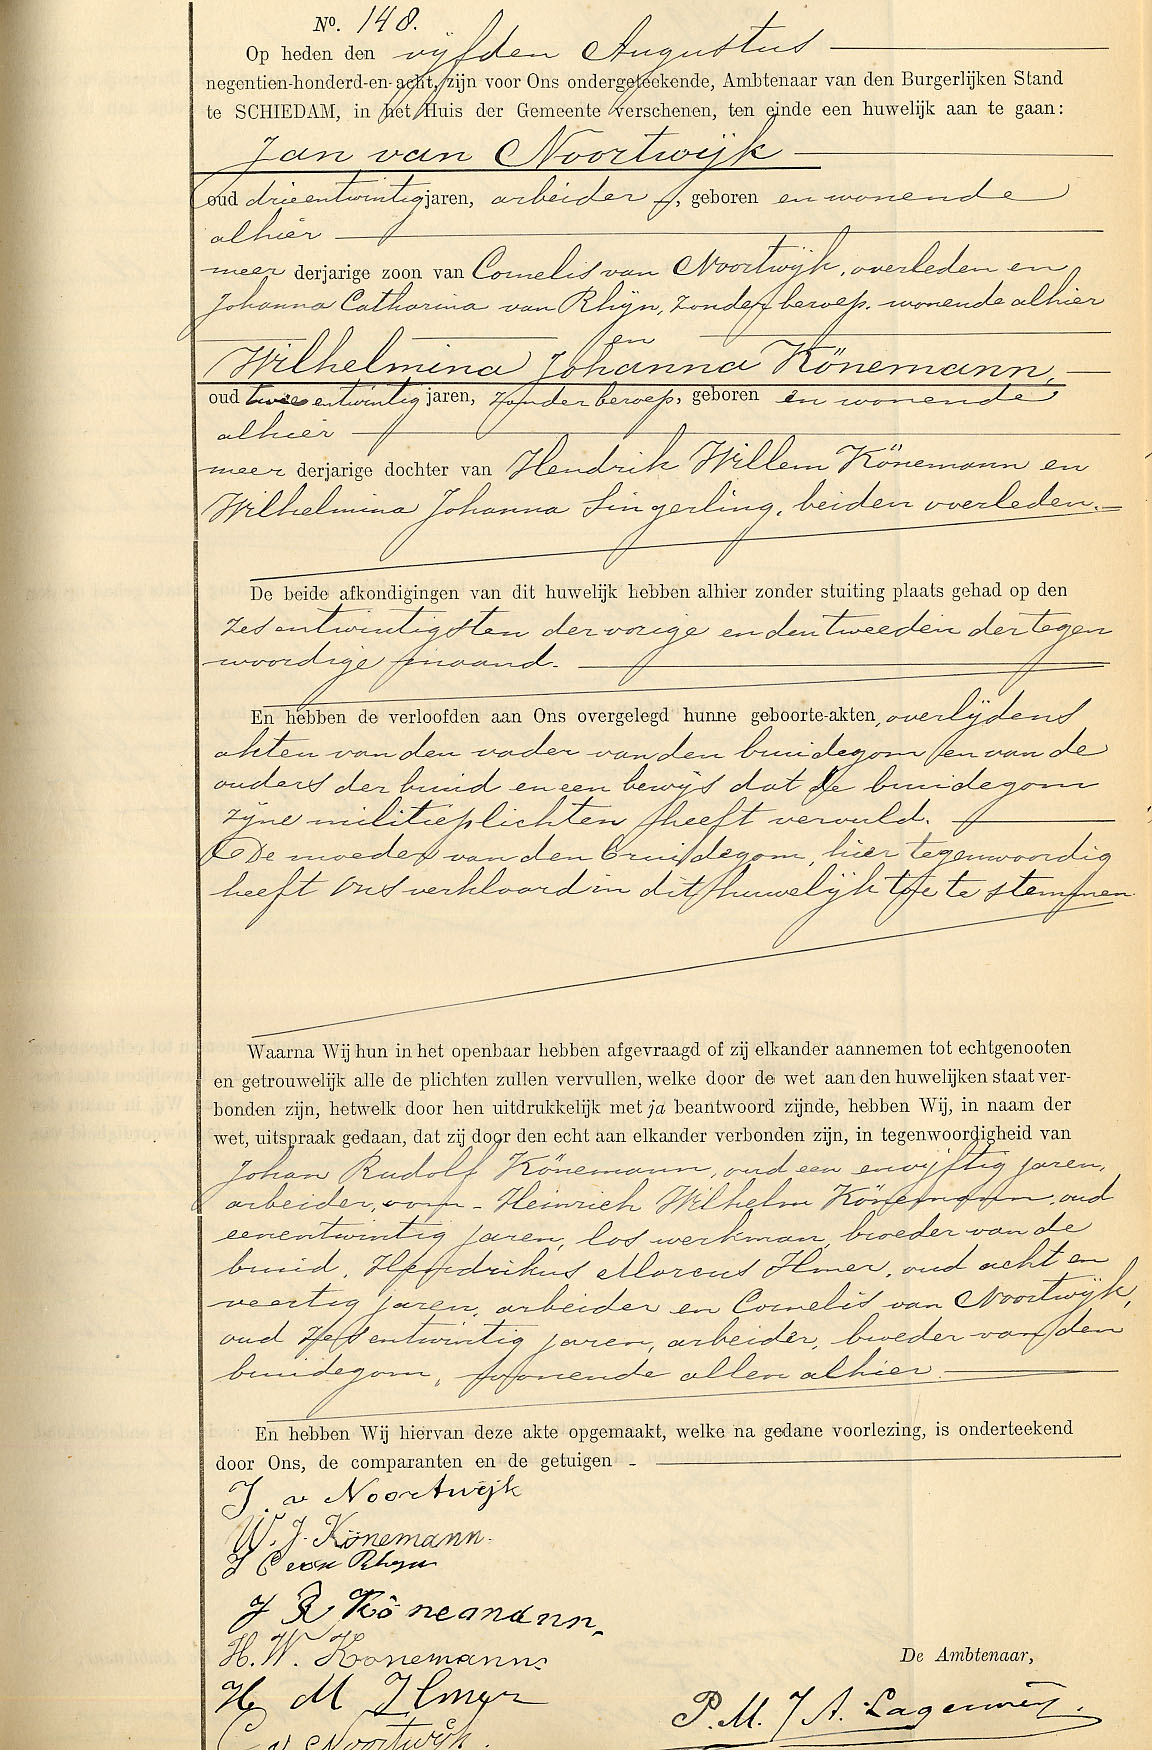 No. 148.
Op heden den vijfden Augustus
negentien-honderd-en-acht, zijn voor Ons ondergeteekende, Ambtenaar van den Burgerlijken Stand
te SCHIEDAM, in het Huis der Gemeente verschenen, ten einde een huwelijk aan te gaan:
Jan van Noortwijk
oud drieentwintig jaren, arbeider, geboren en wonende
alhier
meer derjarige zoon van Cornelis van Noortwijk, overleden en
Johanna Catharina van Rhijn, zonder beroep, wonende alhier
en
Wilhelmina Johanna Könemann,
oud tweeentwintig jaren, zonder beroep, geboren en wonende
alhier
meer derjarige dochter van Hendrik Willem Könemann en
Wilhelmina Johanna Singerling, beiden overleden.
De beide afkondigingen van dit huwelijk hebben alhier zonder stuiting plaats gehad op den
zesentwintigsten der vorige en den tweeden der tegen
woordige maand.
En hebben de verloofden aan Ons overgelegd hunne geboorte-akten, overlijdens
akten van den vader van den bruidegom en van de
ouders der bruid en een bewijs dat de bruidegom
zijne militieplichten heeft vervuld.
De moeder van den bruidegom, hier tegenwoordig
heeft Ons verklaard in dit huwelijk toe te stemmen
Waarna Wij hun in het openbaar hebben afgevraagd of zij elkander aannemen tot echtgenooten
en getrouwelijk alle de plichten zullen vervullen, welke door de wet aan den huwelijken staat ver-
bonden zijn, hetwelk door hen uitdrukkelijk met ja beantwoord zijnde, hebben Wij, in naam der
wet, uitspraak gedaan, dat zij door den echt aan elkander verbonden zijn, in tegenwoordigheid van
Johan Rudolf Könemann, oud een envijftig jaren,
arbeider, oom - Heinrich Wilhelm Könemann, oud
eenentwintig jaren, los werkman, broeder van de
bruid, Hendrikus Marcus Ilmer, oud acht en
veertig jaren, arbeider en Cornelis van Noortwijk,
oud zesentwintig jaren, arbeider, broeder van den
bruidegom, wonende allen alhier
En hebben Wij hiervan deze akte opgemaakt, welke na gedane voorlezing, is onderteekend
door Ons, de comparanten en de getuigen
J. v Noortwijk
W. J. Könemann.
J C van Rhijn
J R Könemann,
H. W. Konemann.
De Ambtenaar,
H M Ilmer
P. M. J A. Lagerweij.
C v. Noortwijk.